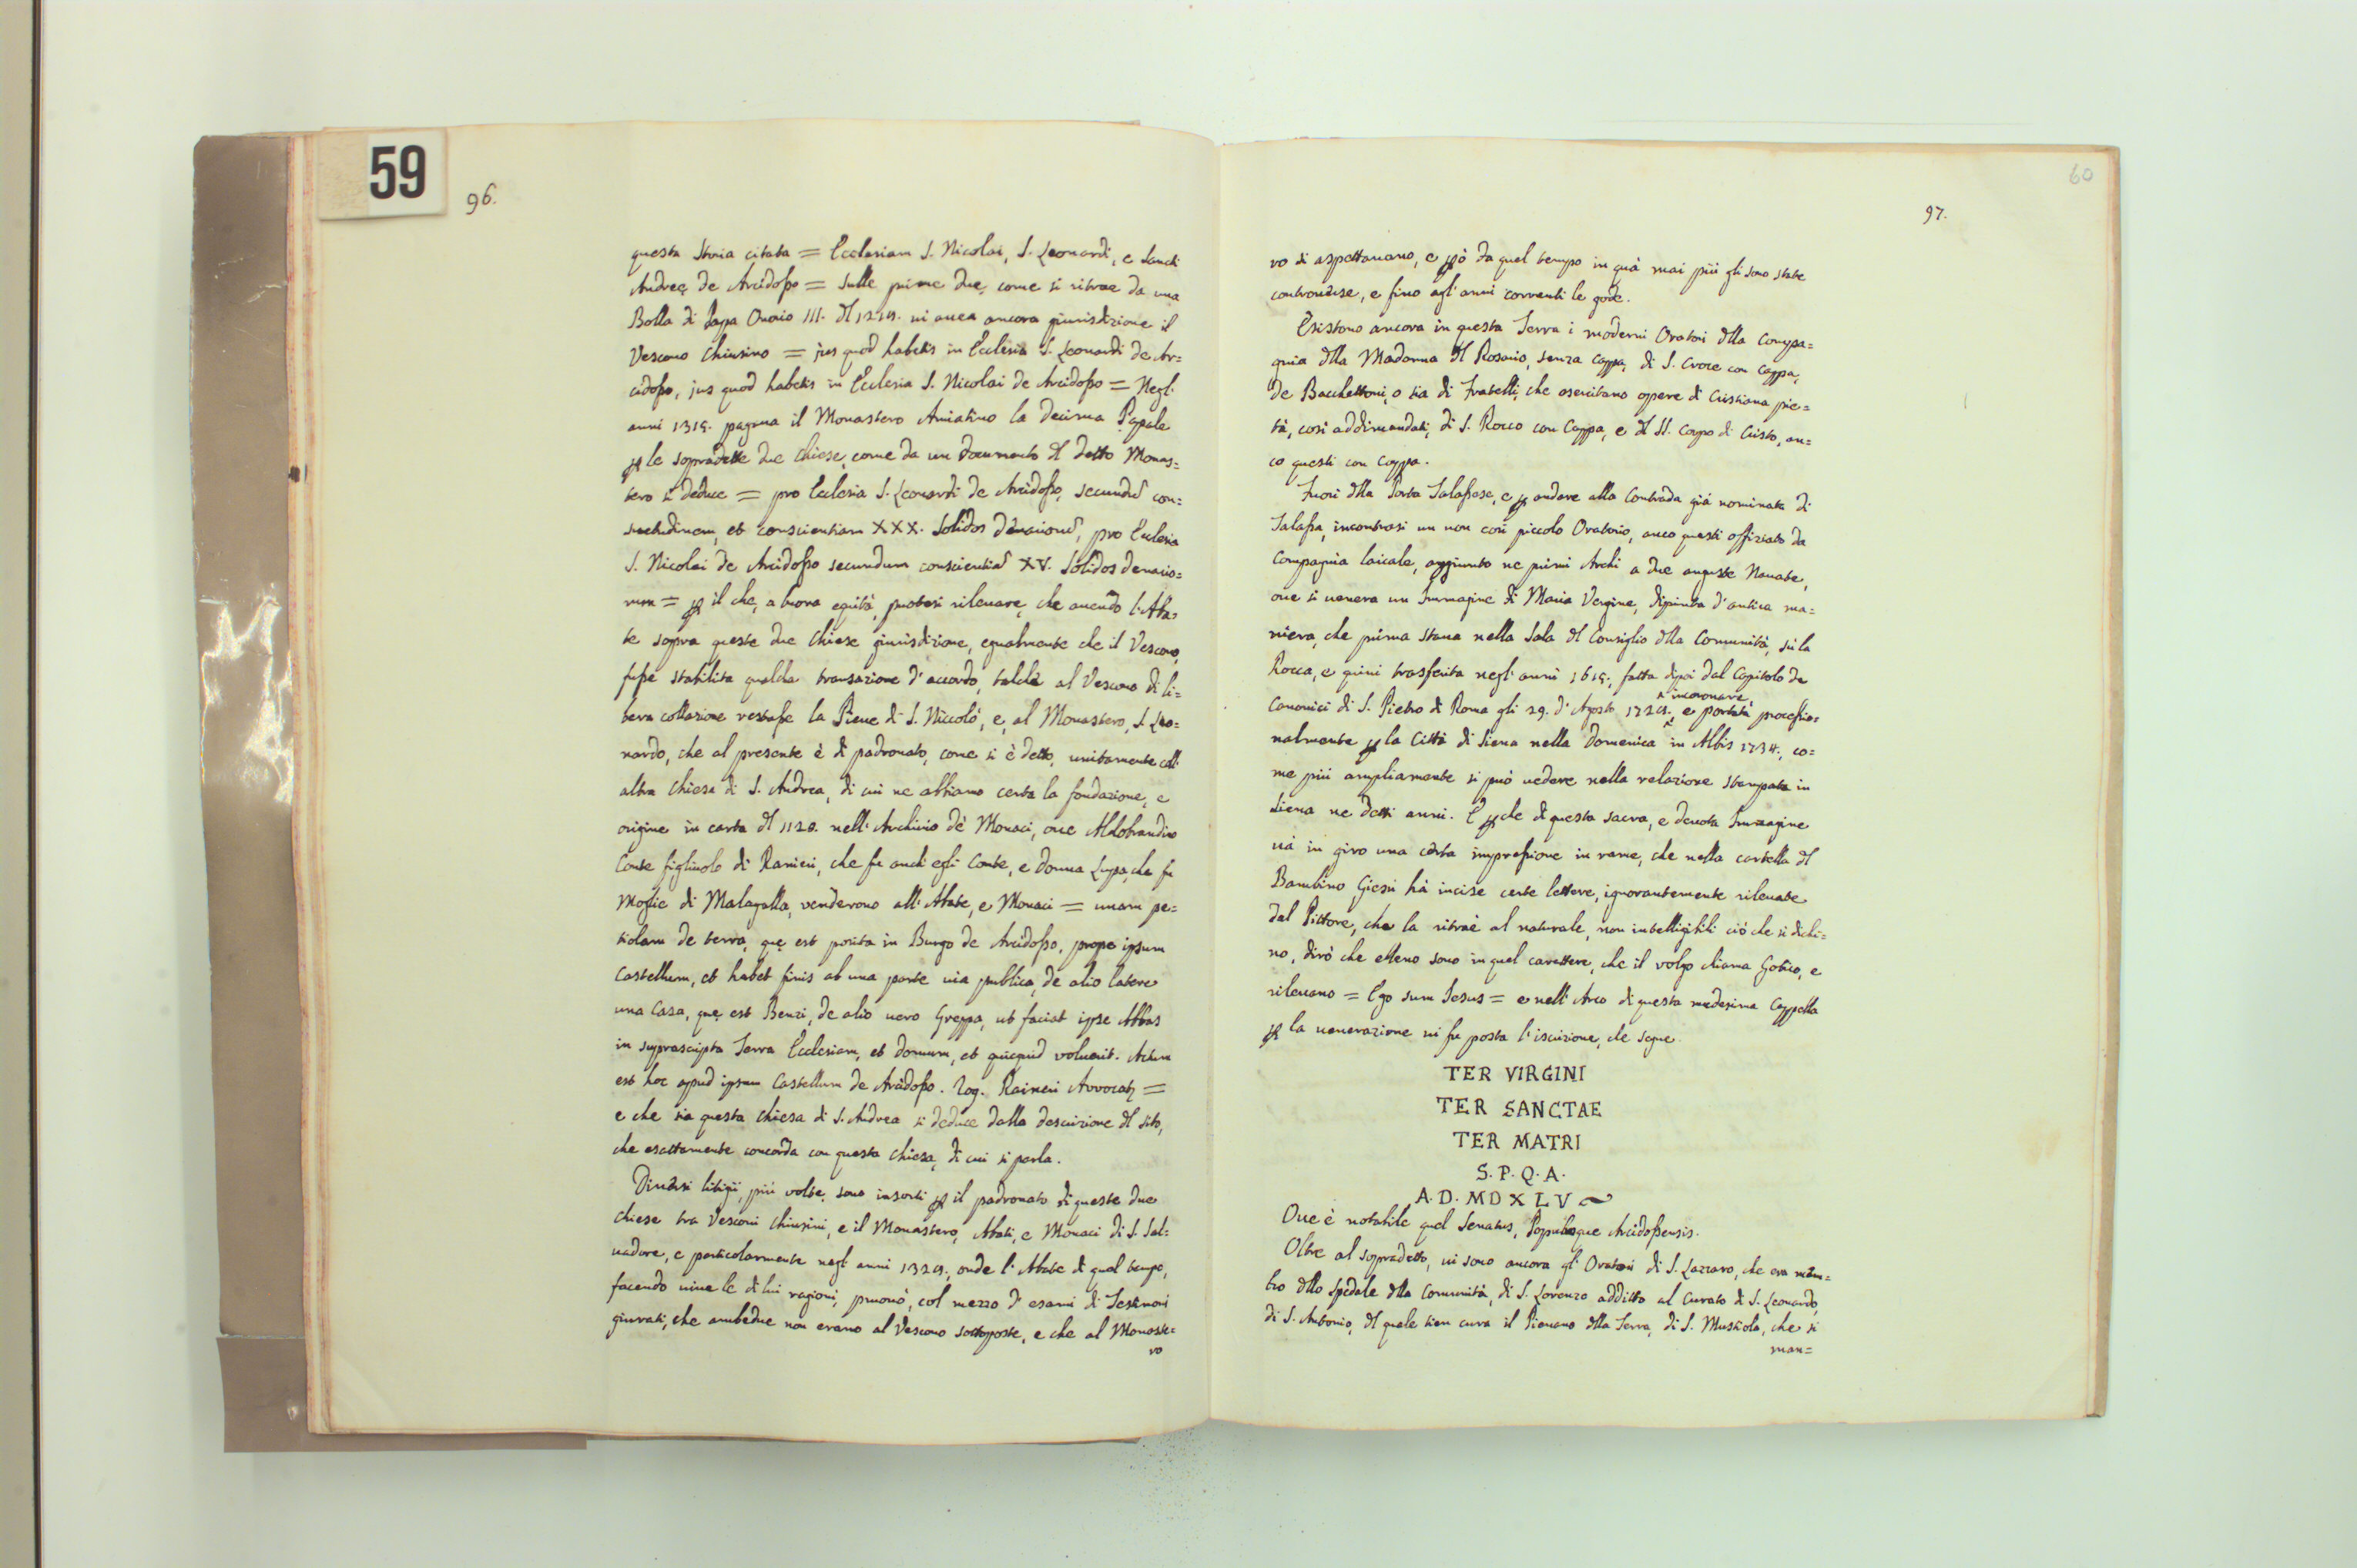 59
96.
questa Storia citata = Ecclesiam S. Nicolai, S. Leonardi, e Sancti
Andreę de Arcidosso = Sulle prime due, come si ritrae da una
Bolla di Papa Onorio III. dl vi auea ancora giurisdizione il
Vescouo Chiusino = jus quod habetis in Ecclesia S. Leonardi de Ar=
cidosso, jus quod habetis in Ecclesia S. Nicolai de Arcidosso = Negl'
anni pagaua il Monastero Amiatino la Decima Papale
p le sopradette due Chiese, come da un documento dl detto Monas=
tero si deduce = pro Ecclesia S. Leonardi de Arcidosso, secundu con=
suetudinem, et conscientiam XXX. Solidos denarioru, pro Ecclesia
S. Nicolai de Arcidosso secundum conscientia XV. Solidos denario=
rum = p il che, a buona equità, puotesi rileuare, che auendo l'Aba=
te sopra queste due Chiese giurisdizione, egualmente che il Vescouo,
fusse stabilita qualche transazione d'accordo, talchè al Vescouo di li=
bera collazione restasse la Pieue di S. Niccolò, e, al Monastero, S. Leo=
nardo, che al presente è di padronato, come si è detto, unitamente coll'
altra Chiesa di S. Andrea, di cui ne abbiamo certa la fondazione, e
origine in carta dl 1120. nell'Archiuio dè Monaci, oue Aldobrandino
Conte figliuolo di Ranieri, che fu anch'egli Conte, e Donna Lupa, che fu
Moglie di Malagalla, venderono all'Abate, e Monaci = unam pe=
tiolam de terra, quę est posita in Burgo de Arcidosso, prope ipsum
Castellum, et habet finis ab una parte uia publica, de alio latere
una Casa, quę est Benzi, de alio uero Greppa, ut faciat ipse Abbas
in suprascripta Terra Ecclesiam, et domum, et quicquid voluerit. Actum
est hoc apud ipsum Castellum de Arcidosso. Rog. Raineri =
e che sia questa Chiesa di S. Andrea si deduce dalla descrizione dl sito,
che esattamente concorda con questa Chiesa, di cui si parla.
Diuersi litigii, più volte, sono insorti p il padronato di queste due
Chiese tra Vescoui Chiusini, e il Monastero, Abati, e Monaci di S. Sal=
uadore, e particolarmente negl'anni onde l'Abate di quel tempo,
facendo uiue le di lui ragioni, prouò, col mezzo d'esami di Testimoni
giurati, che ambedue non erano al Vescouo sottoposte, e che al Monaste=
ro
60
97.
ro si aspettauano, e pò da quel tempo in quà mai più gli sono state
controuerse, e fino agl'anni correnti le gode.
Esistono ancora in questa Terra i moderni Oratori dlla Compa=
gnia dlla Madonna dl Rosario, senza Cappa, di S. Croce con Cappa,
de Bacchettoni, o sia di Fratelli, che esercitano opere di Cristiana pie=
tà, così addimandati, di S. Rocco con Cappa, e dl SS. Corpo di Cristo, an=
co questi con Cappa.
Fuori dlla Porta Talassese, e p andare alla Contrada già nominata di
Talassa, incontrasi un non così piccolo Oratorio, anco questi offiziato da
Compagnia laicale, aggiunto ne primi Archi a due anguste Nauate,
oue si uenera un Immagine di Maria Vergine, dipinta d'antica ma=
niera, che prima staua nella Sala dl Consiglio dlla Comunità, sù la
Rocca, e quiui trasferita negl'anni fatta dipoi dal Capitolo de
incoronare
Canonici di S. Pietro di Roma gli 29. d'Agosto e portata processio=
nalmente p la Città di Siena nella Domenica in Albis 1734., co=
me più ampliamente si può uedere nella relazione stampata in
Siena ne detti anni. E p che di questa sacra, e deuota Immagine
uà in giro una certa impressione in rame, che nella cartella dl
Bambino Giesù hà incise certe lettere, ignorantemente rileuate
dal Pittore, che la ritraè al naturale, non intelligibili ciò che si dichi=
no, dirò che elleno sono in quel carattere, che il volgo chiama Gotico, e
rileuano = Ego sum Jesus = e nell'Arco di questa medesima Cappella
p la uenerazione ui fu posta l'iscrizione, che segue.
TER VIRGINI
TER SANCTAE
TER MATRI
S. P. Q. A.
A. D. MDXLV
Oue è notabile quel Senatus, Populusque Arcidossensis.
Oltre al sopradetto, ui sono ancora gl'Oratori di S. Lazzaro, che era mem=
bro dllo Spedale dlla Comunità, di S. Lorenzo additto al Curato di S. Leonardo,
di S. Antonio, dl quale tien cura il Pieuano dlla Terra, di S. Mustiola, che si
man=